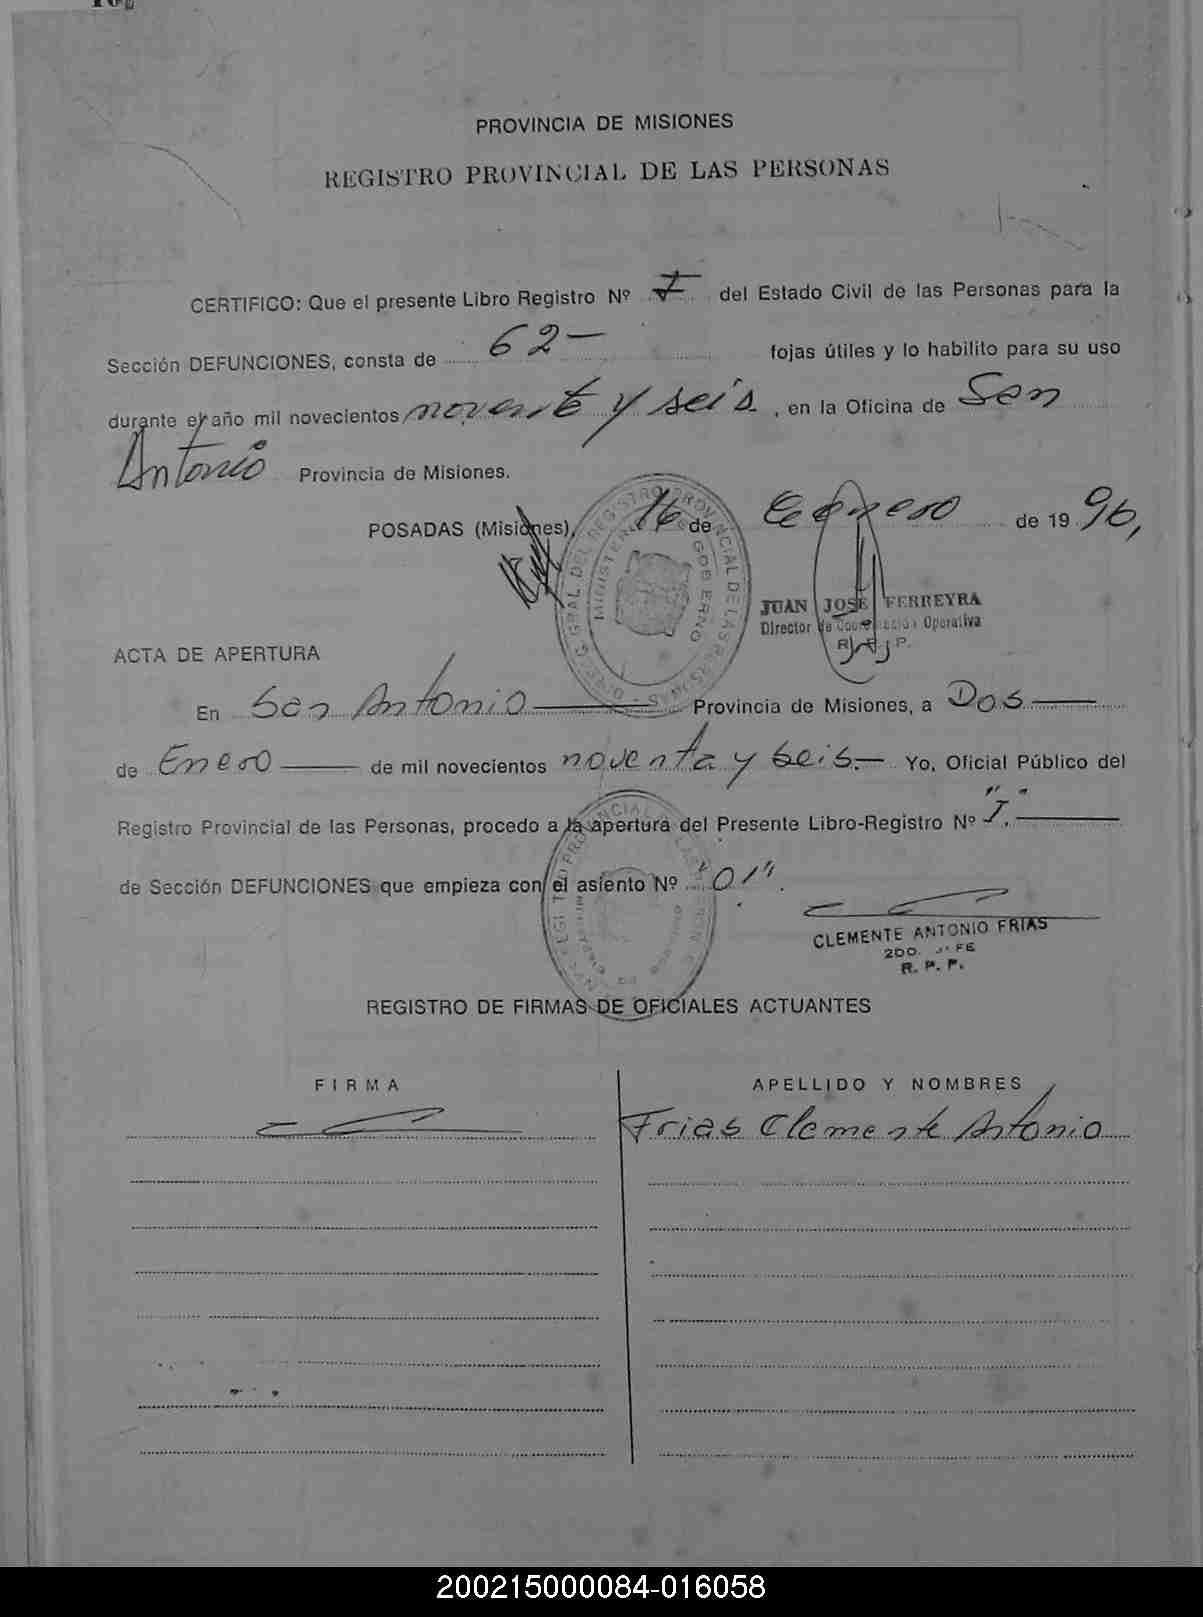 PROVINCIA DE MISIONES
REGISTRO PROVINCIAL DE LAS PERSONAS
CERTIFICO: Que el presente Libro Registro Nº I del Estado Civil de las Personas para la
Sección DEFUNCIONES, consta de 62- fojas útiles y lo habilito para su uso
durante el año mil novecientos noventa y seis, en la Oficina de San
Antonio Provincia de Misiones.
POSADAS (Misiones), 16 de Enero de 19 96,
DIREC. GRAL. DEL REGISTRO PROVINCIAL DE LAS PERSONAS
MINISTERIO DE GOBIERNO
JUAN JOSE FERREYRA
Director de Coordinación Operativa
R. P. P.
ACTA DE APERTURA
En San Antonio Provincia de Misiones, a Dos
de Enero de mil novecientos noventa y seis.- Yo, Oficial Público del
Registro Provincial de las Personas, procedo a la apertura del Presente Libro-Registro Nº "I".
de Sección DEFUNCIONES que empieza con el asiento Nº "01".
CLEMENTE ANTONIO FRIAS
2DO. JEFE
R. P. P.
REGISTRO DE FIRMAS DE OFICIALES ACTUANTES
FIRMA APELLIDO Y NOMBRES
Frias Clemente Antonio
200215000084-016058